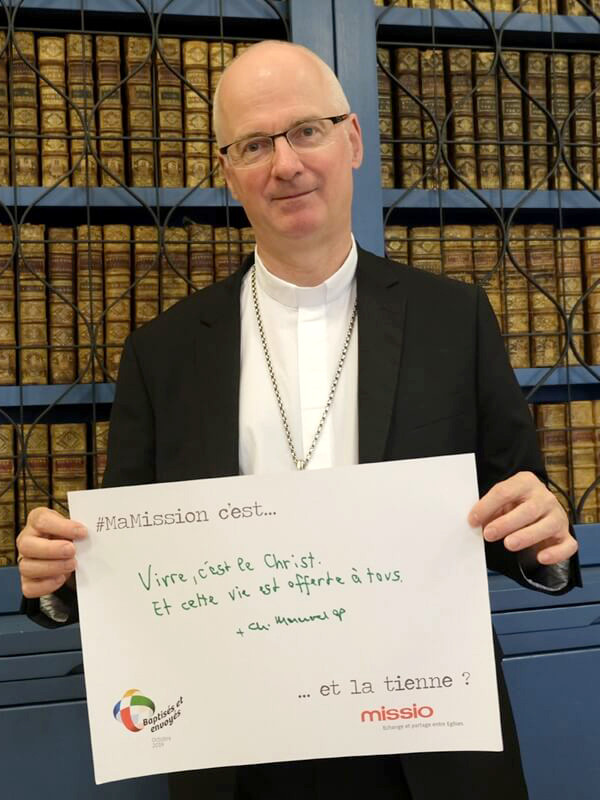 #MaMission c'est...
Vivre, c'est le Christ.
Et cette vie est offerte à tous.
+ Ch. Morerod op
... et la tienne ?
Baptisés et
envoyés
Octobre
2019
missio
Echange et partage entre Eglises